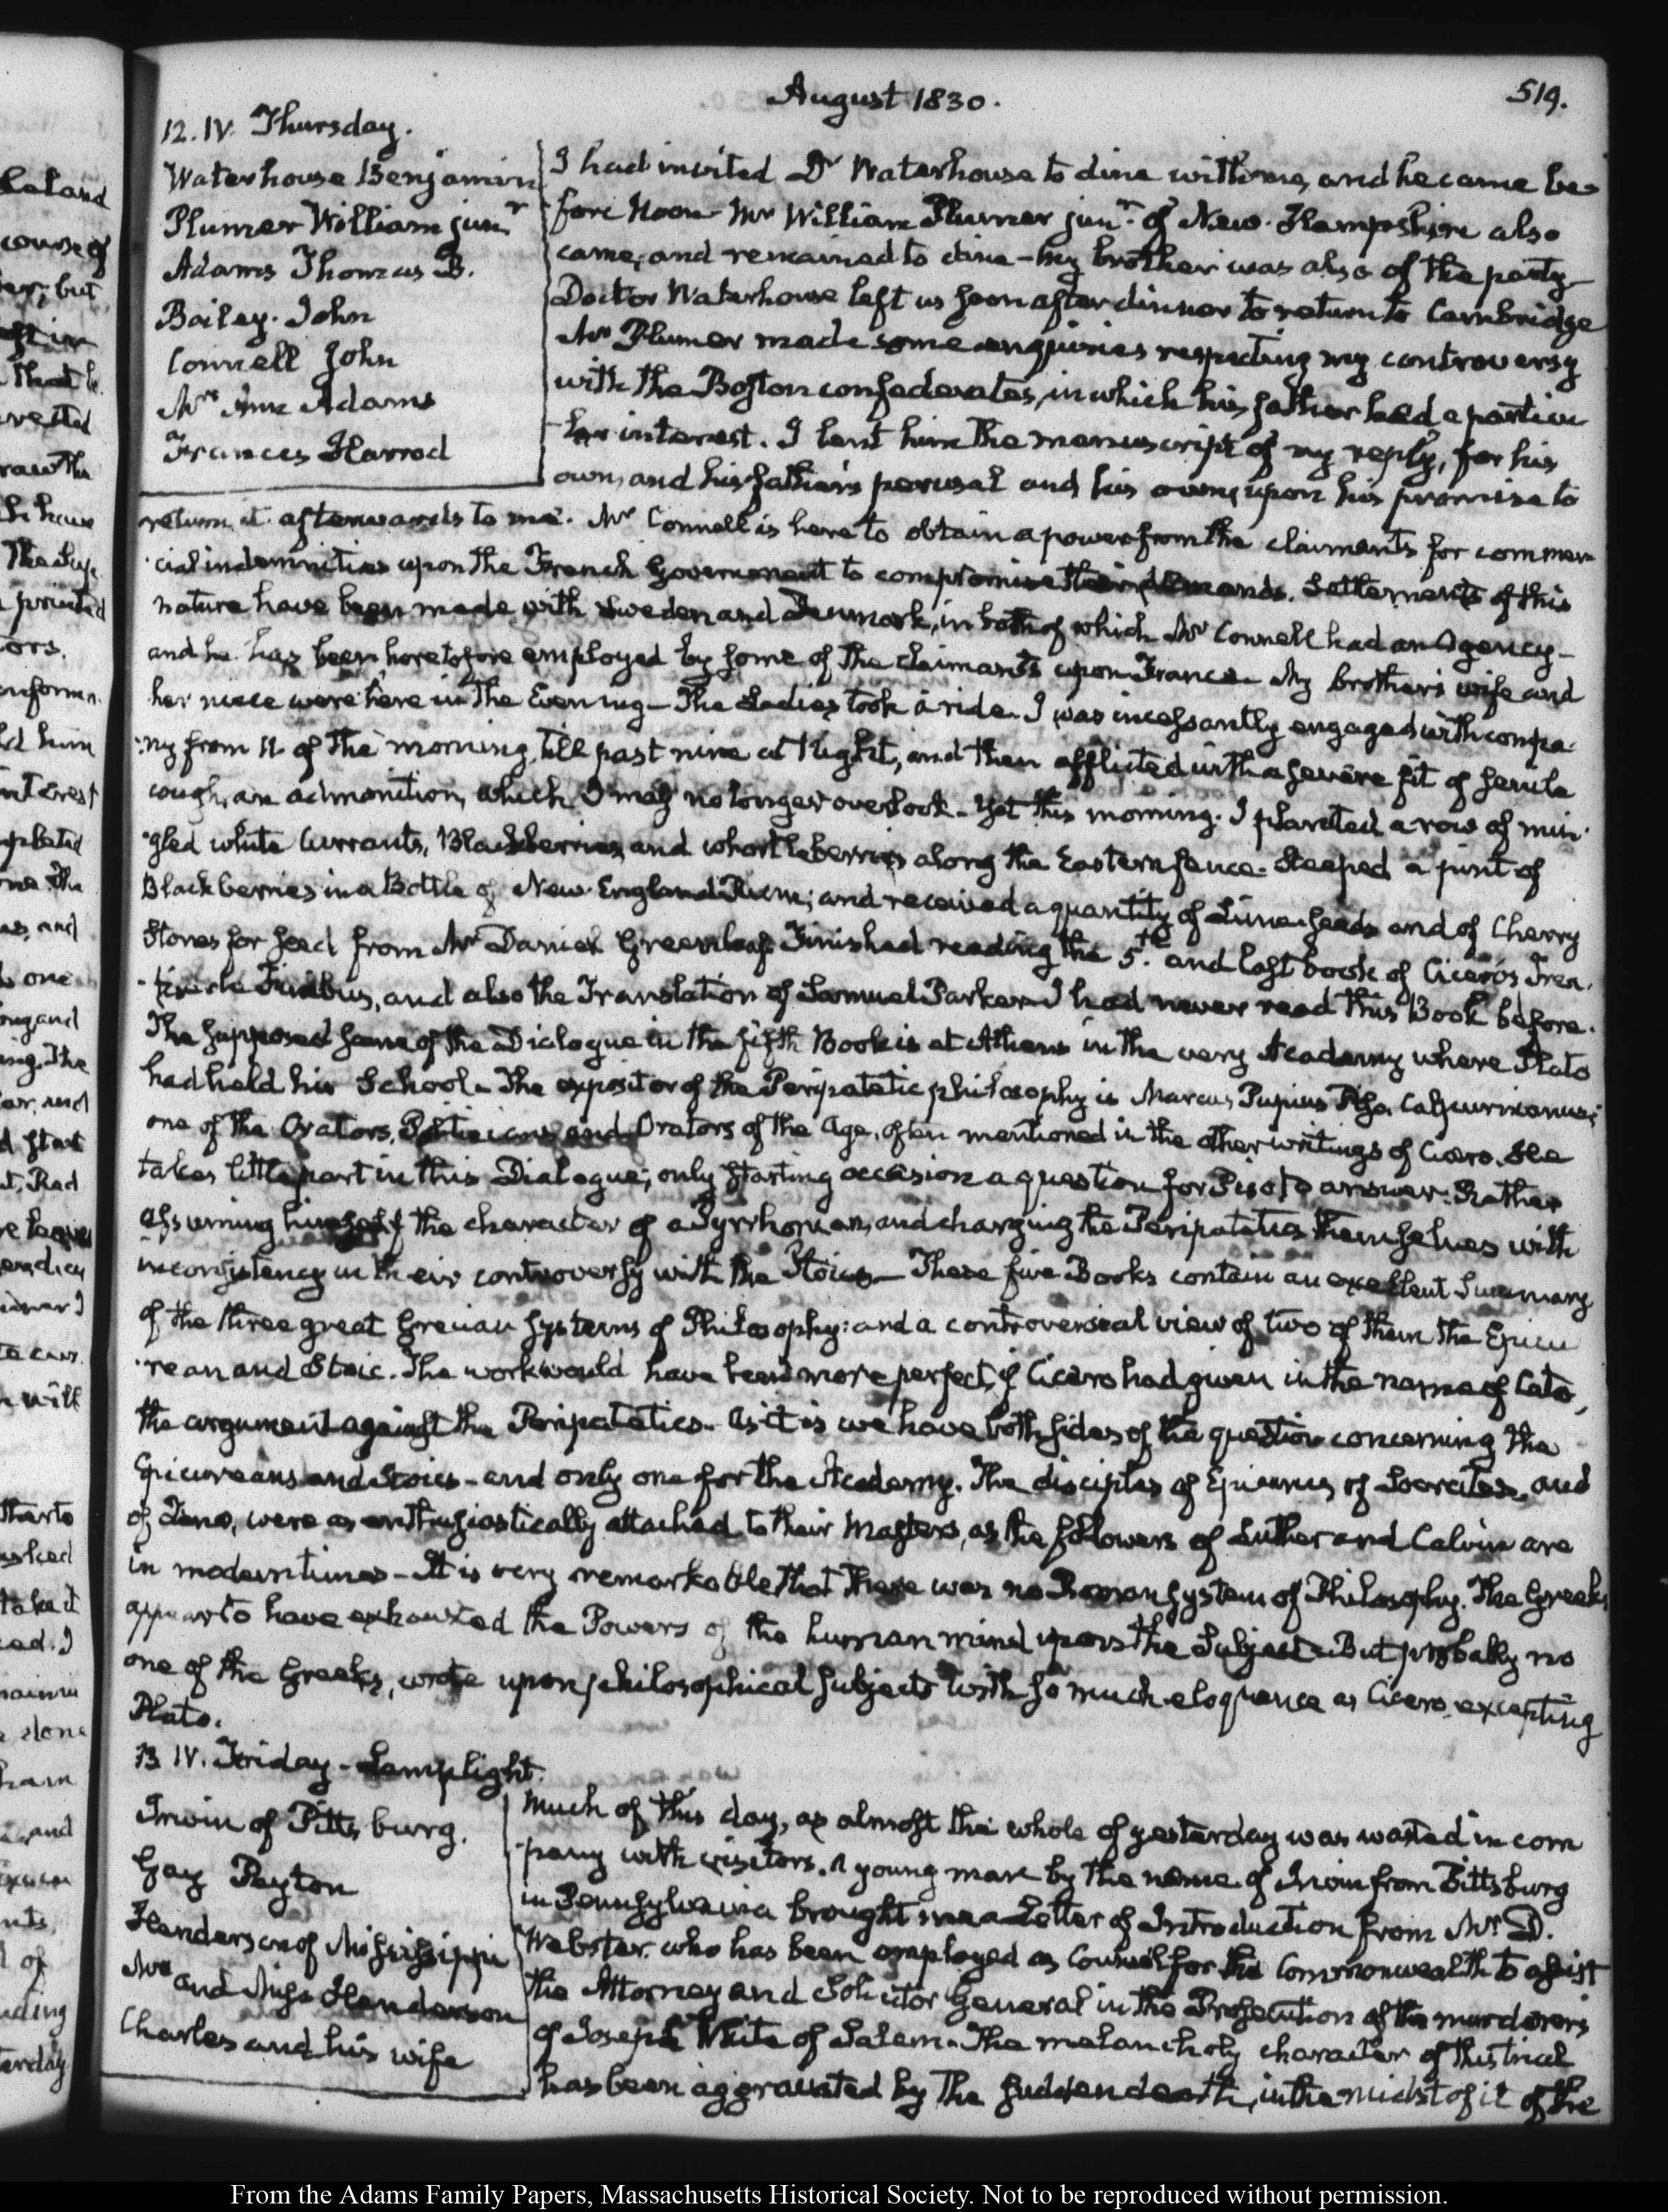 August 1830.
519.
12. IV. Thursday.
Waterhouse Benjamin
Plumer William junr
Adams Thomas B.
Bailey. John
Connell John
Mrs Ann Adams
Frances Harrod
I had invited Dr Waterhouse to dine with me, and he came be-
fore Noon Mr William Plumer junr. of New-Hampshire also
came, and remained to dine - my brother was also of the party-
Doctor Waterhouse left us soon after dinner to return to Cambridge
Mr Plumer made some enquiries respecting my controversy
with the Boston confederates, in which his father had a particu
-lar interest. I lent him the manuscript of my reply, for his
own, and his father's perusal and his own, upon his promise to
return it afterwards to me. Mr Connell is here to obtain a power from the claimants for commer-
cial indemnities upon the French Government to compromise their demands. Settlements of this
nature have been made with Sweden and Denmark, in both of which Mr Connell had an Agency-
and he has been heretofore employed by some of the claimants upon France - My brother's wife and
her niece were here in the Evening - The Ladies took a ride. I was incessantly engaged with compa-
-ny from 11 of the morning, till past nine at Night, and then afflicted with a severe fit of senile
cough, an admonition, which I may no longer overlook - Yet this morning. I planted a row of min-
-gled white Currants, Blackberries, and whortleberries along the Eastern fence. Steeped a pint of
Blackberries in a Bottle of New-England Rum; and received a quantity of Lime-seeds and of Cherry
Stones for seed from Mr Daniel Greenleaf. Finished reading the 5th. and last book of Cicero's Trea-
-tise de Finibus, and also the Translation of Samuel Parker - I had never read this Book before.
The supposed scene of the Dialogue in the fifth Book is at Athens in the very Academy where Plato
had held his School - The expositor of the Peripatetic philosophy is Marcus Pupius Piso Calpurnianus;
one of the Orators, Politicians and Orators of the Age, often mentioned in the other writings of Cicero. He
takes little part in this Dialogue; only starting occasion a question for Piso to answer. Rather
assuming himself the character of a Pyrrhonian, and charging the Peripatetics themselves with
inconsistency in their controversy with the Stoics - These five Books contain an excellent Summary
of the three great Grecian systems of Philosophy: and a controversial view of two of them the Epicu
-rean and Stoic. The work would have been more perfect, if Cicero had given in the name of Cato,
the argument against the Peripatetics. As it is we have both sides of the question concerning the
Epicureans and Stoics - and only one for the Academy. The disciples of Epicurus, of Socrates, and
of Zeno, were as enthusiastically attached to their Masters, as the followers of Luther and Calvin are
in modern times - It is very remarkable that there was no Roman system of Philosophy. The Greeks
appear to have exhausted the Powers of the human mind upon the Subject - But probably no
one of the Greeks, wrote upon philosophical subjects with so much eloquence as Cicero, excepting
Plato.
13 IV. Friday - Lamplight.
Irwin of Pittsburg.
Gay Payton
Henderson of Mississippi
Mrs and Miss Henderson
Charles and his wife
Much of this day, as almost the whole of yesterday was wasted in com
-pany with visitors. A young man by the name of Irwin from Pittsburg
in Pennsylvania brought me a Letter of Introduction from Mr D.
Webster. who has been employed as Counsel for the Commonwealth to assist
the Attorney and Solicitor General in the Prosecution of the murderers
of Joseph White of Salem. The melancholy character of this trial
has been aggravated by the sudden death, in the midst of it of the
From the Adams Family Papers, Massachusetts Historical Society. Not to be reproduced without permission.